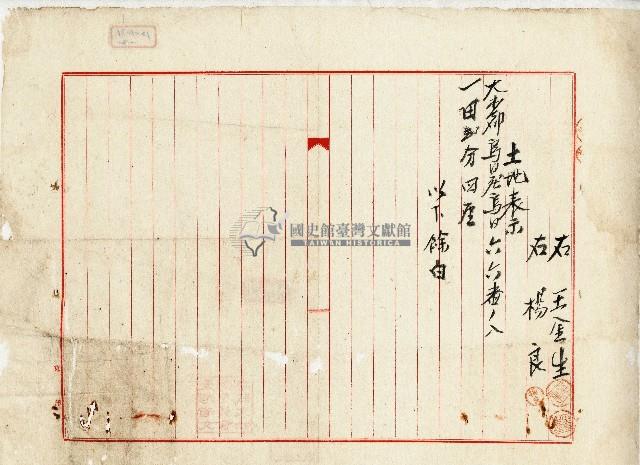 右 王金生
右 楊良
土地表示
大字郡烏日庄烏日六六番ノ八
一田弐分四厘
以下餘白
國史館臺灣文獻館
TAIWAN HISTORICA